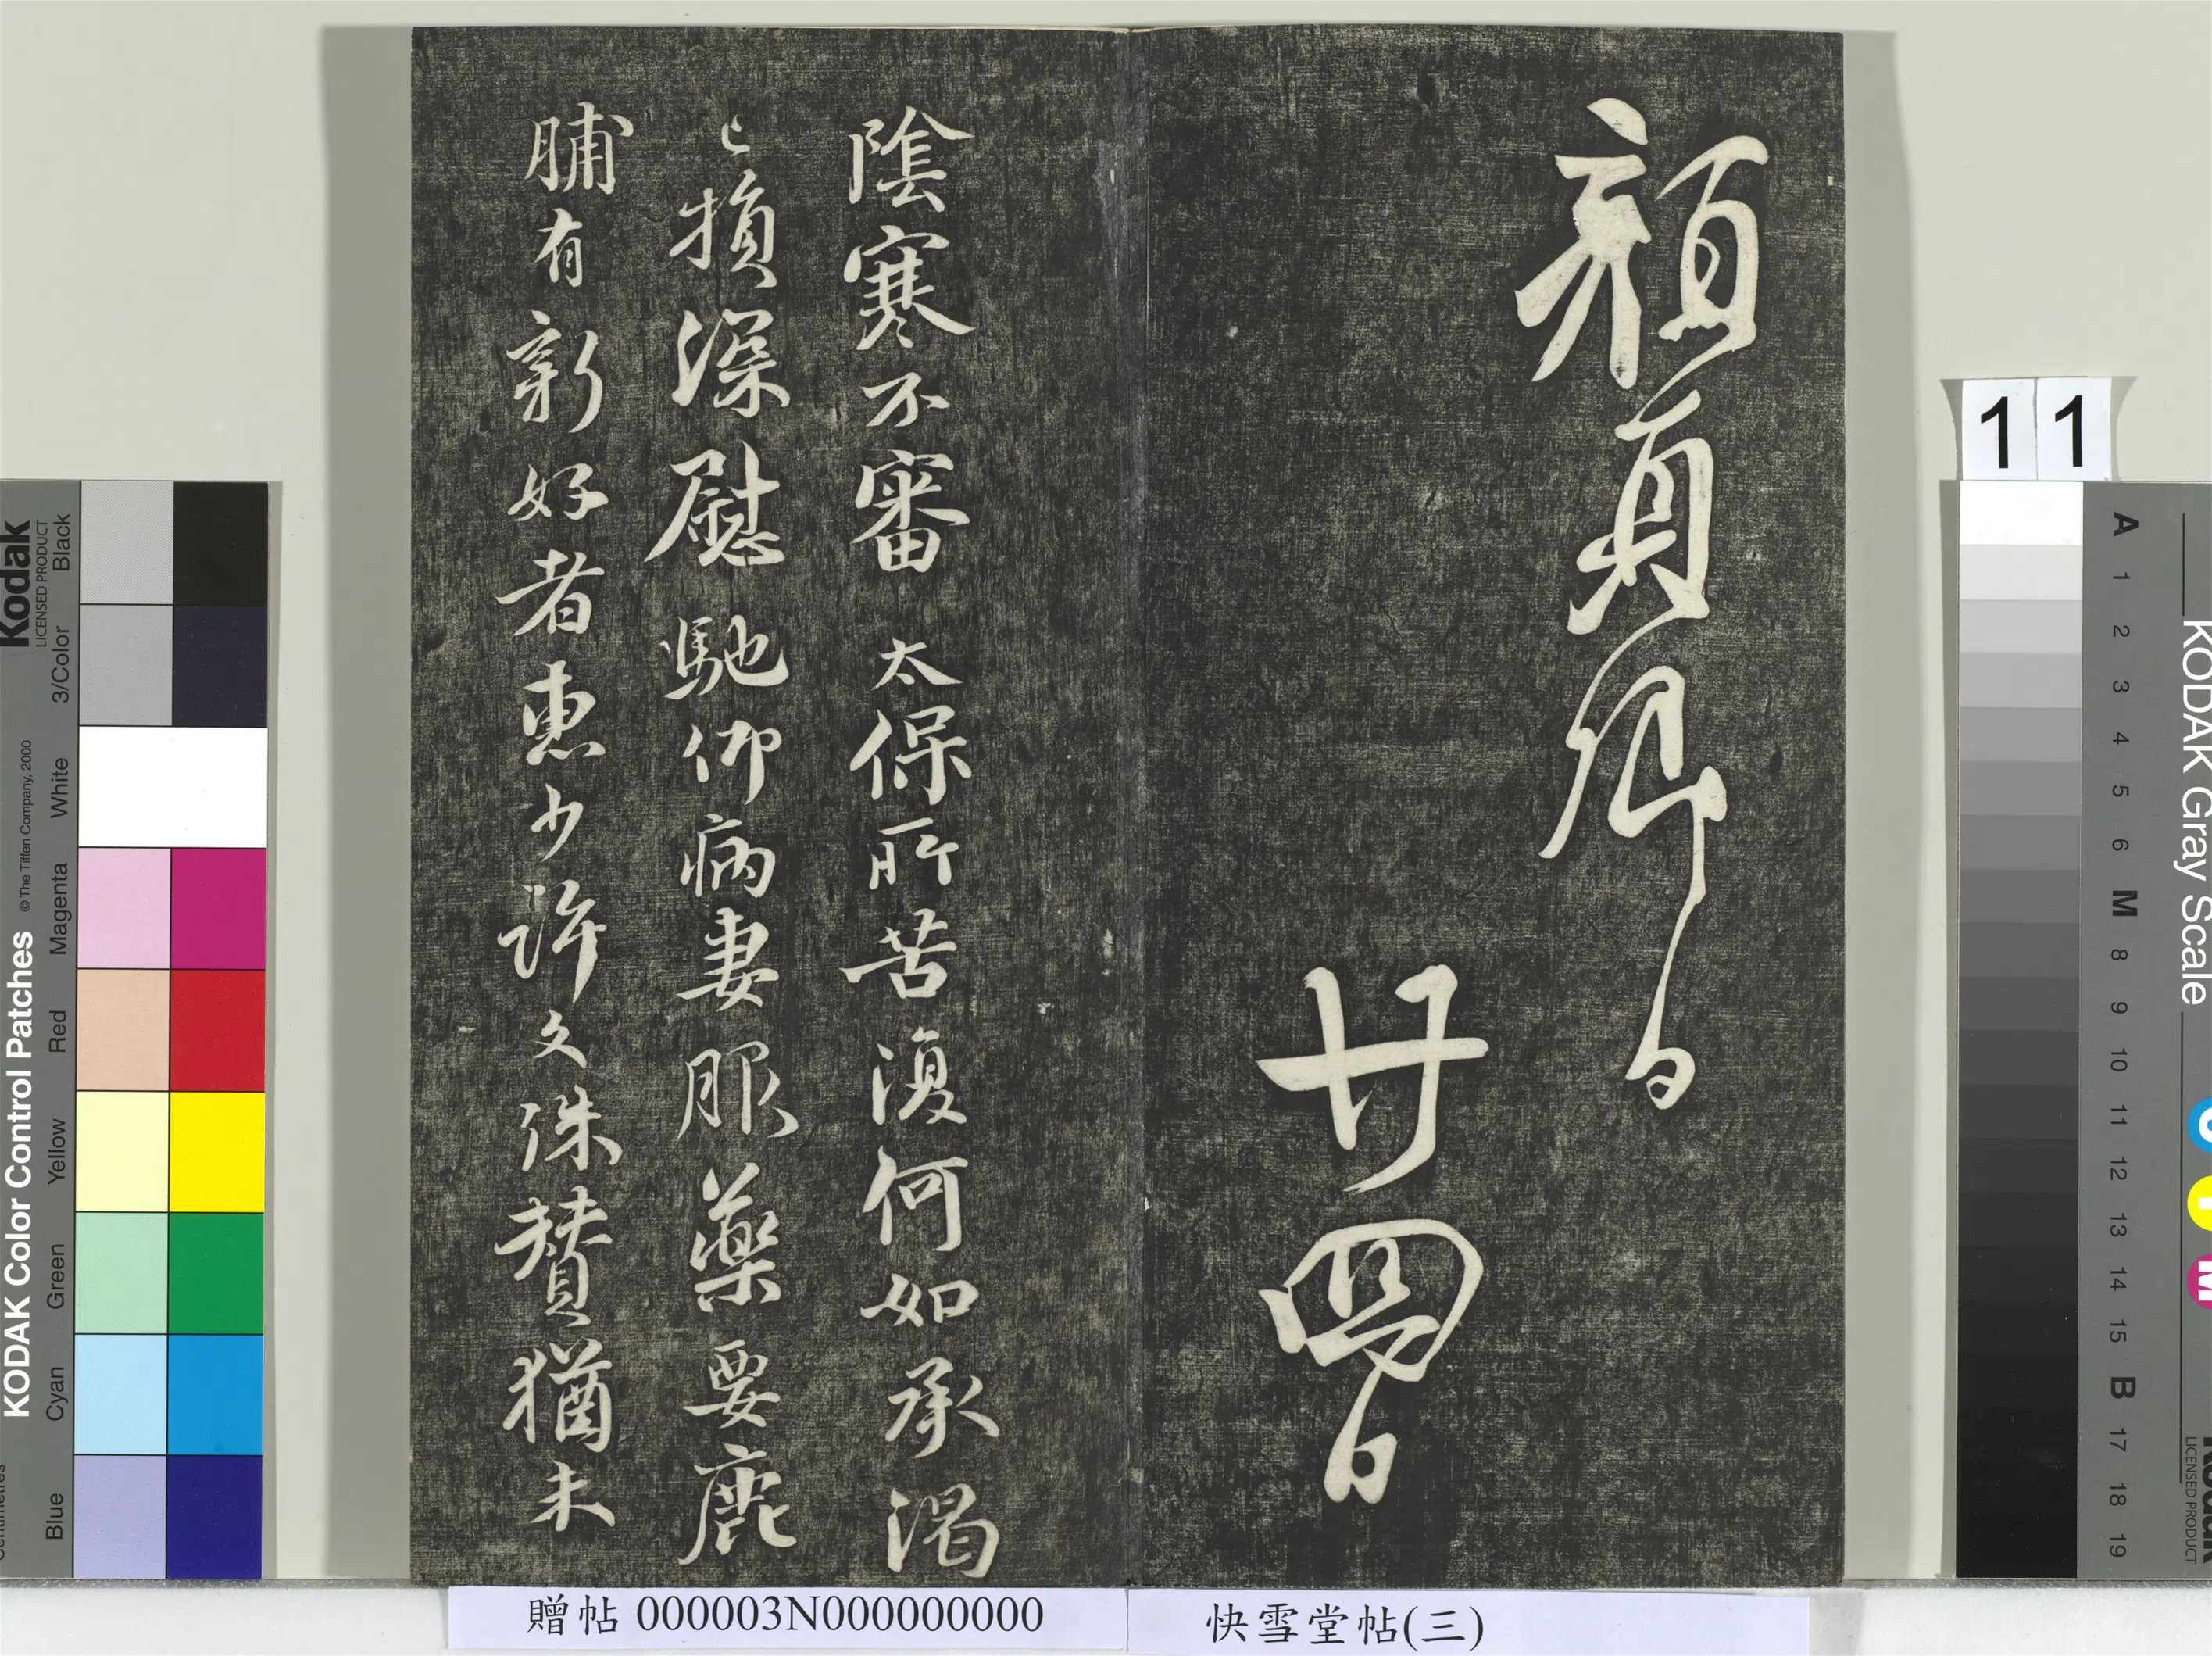 顏真卿白
廿四日
陰寒不審　太保所苦復何如承渴
已損深慰馳仰病妻服藥要鹿
脯有新好者惠少許文殊贊猶未
贈帖 000003N000000000
快雪堂帖(三)
11
Kodak
LICENSED PRODUCT
KODAK Color Control Patches
© The Tiffen Company, 2000
Black
3/Color
White
Magenta
Red
Yellow
Green
Cyan
Blue
KODAK Gray Scale
A 1 2 3 4 5 6 M 8 9 10 11 12 13 14 15 B 17 18 19
C
Y
M
Kodak
LICENSED PRODUCT